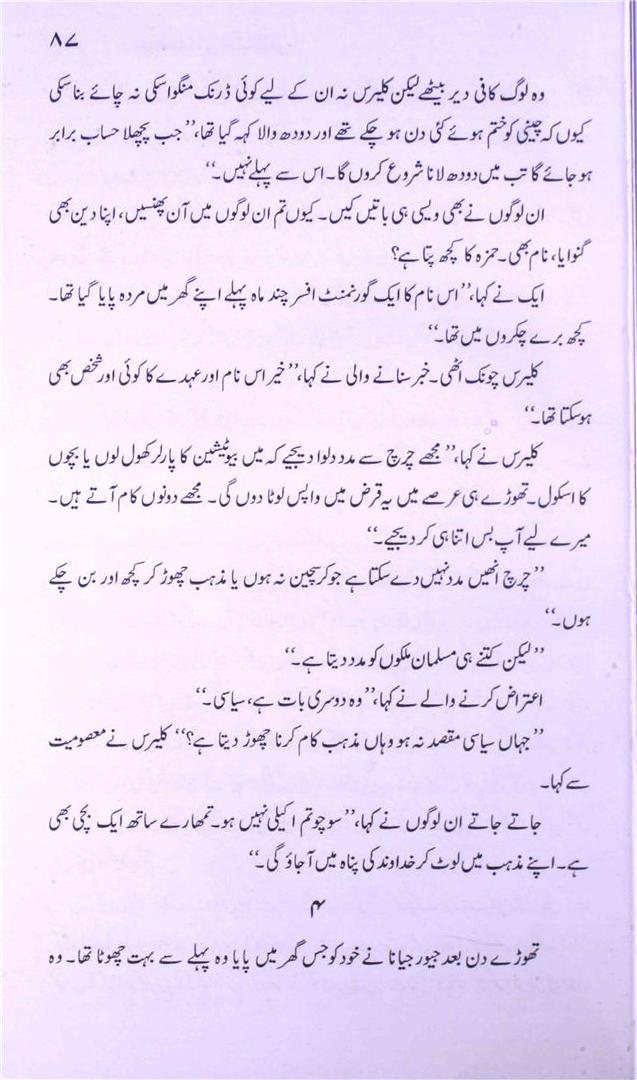 ۸۷
وہ لوگ کافی دیر بیٹھے لیکن کلیرس نہ ان کے لیے کوئی ڈرنک منگوا سکی نہ چائے بنا سکی
کیوں کہ چینی کو ختم ہوئے کئی دن ہو چکے تھے اور دودھ والا کہہ گیا تھا، ’’جب پچھلا حساب برابر
ہو جائے گا تب میں دودھ لانا شروع کروں گا۔ اس سے پہلے نہیں۔‘‘
ان لوگوں نے بھی ویسی ہی باتیں کیں۔ کیوں تم ان لوگوں میں آن پھنسیں، اپنا دین بھی
گنوایا، نام بھی۔ حمزہ کا کچھ پتا ہے؟
ایک نے کہا، ’’اس نام کا ایک گورنمنٹ افسر چند ماہ پہلے اپنے گھر میں مردہ پایا گیا تھا۔
کچھ برے چکروں میں تھا۔‘‘
کلیرس چونک اٹھی۔ خبر سنانے والی نے کہا، ’’خیر اس نام اور عہدے کا کوئی اور شخص بھی
ہو سکتا تھا۔‘‘
کلیرس نے کہا، ’’مجھے چرچ سے مدد دلوا دیجیے کہ میں بیوٹیشین کا پارلر کھول لوں یا بچوں
کا اسکول۔ تھوڑے ہی عرصے میں یہ قرض میں واپس لوٹا دوں گی۔ مجھے دونوں کام آتے ہیں۔
میرے لیے آپ بس اتنا ہی کر دیجیے۔‘‘
’’چرچ انھیں مدد نہیں دے سکتا ہے جو کرسچین نہ ہوں یا مذہب چھوڑ کر کچھ اور بن چکے
ہوں۔‘‘
’’لیکن کتنے ہی مسلمان ملکوں کو مدد دیتا ہے۔‘‘
اعتراض کرنے والے نے کہا، ’’وہ دوسری بات ہے، سیاسی۔‘‘
’’جہاں سیاسی مقصد نہ ہو وہاں مذہب کام کرنا چھوڑ دیتا ہے؟‘‘ کلیرس نے معصومیت
سے کہا۔
جاتے جاتے ان لوگوں نے کہا، ’’سوچو تم اکیلی نہیں ہو۔ تمھارے ساتھ ایک بچی بھی
ہے۔ اپنے مذہب میں لوٹ کر خداوند کی پناہ میں آ جاؤ گی۔‘‘
۴
تھوڑے دن بعد جیورجیانا نے خود کو جس گھر میں پایا وہ پہلے سے بہت چھوٹا تھا۔ وہ